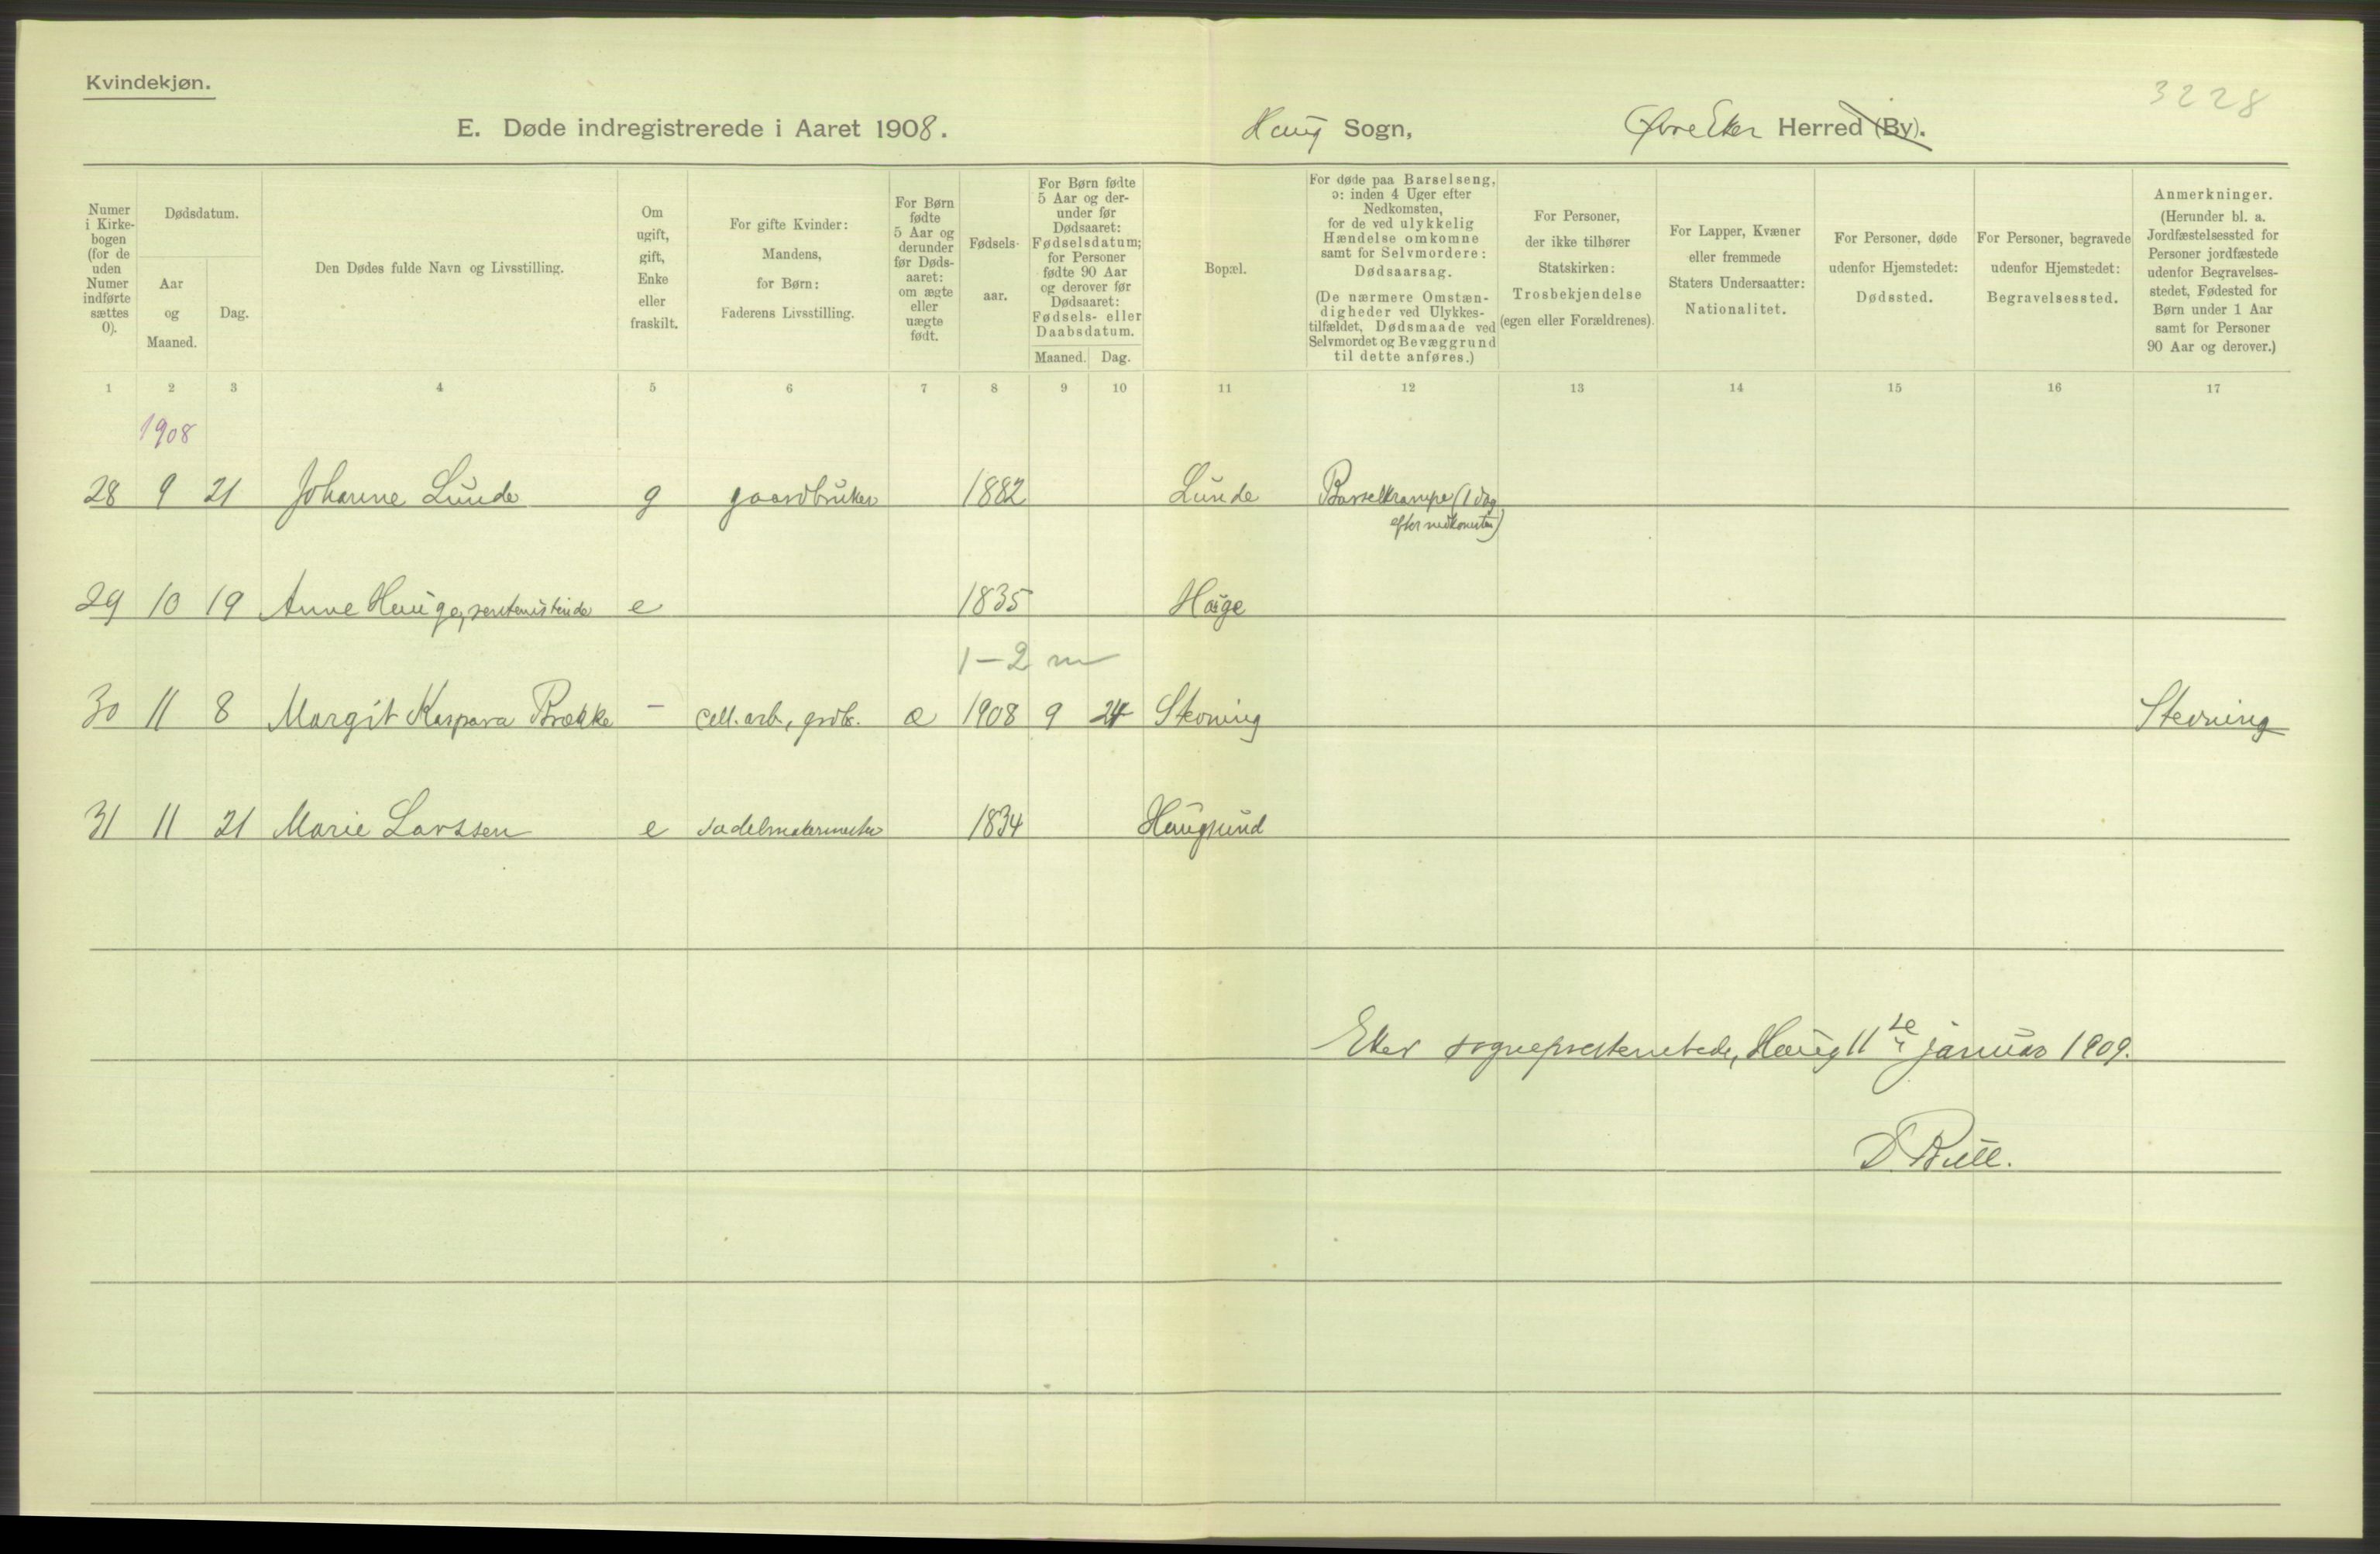 Kvindekjøn.
3228
E. Døde indregistrerede i Aaret 1908. Haug Sogn, Øvre Eker Herred (By).
Numer i Kirke-bogen (for de uden Numer indførte sættes 0).
Dødsdatum.
Aar og Maaned.
Dag.
Den Dødes fulde Navn og Livsstilling.
Om ugift, gift, Enke eller fraskilt.
For gifte Kvinder: Mandens, for Børn: Faderens Livsstilling.
For Børn fødte 5 Aar og derunder før Døds-aaret: om ægte eller uægte født.
Fødsels-aar.
For Børn fødte 5 Aar og der-under før Dødsaaret: Fødselsdatum; for Personer fødte 90 Aar og derover før Dødsaaret: Fødsels- eller Daabsdatum.
Maaned. Dag.
Bopæl.
For døde paa Barselseng, ɔ: inden 4 Uger efter Nedkomsten, for de ved ulykkelig Hændelse omkomne samt for Selvmordere: Dødsaarsag.
(De nærmere Omstæn-digheder ved Ulykkes-tilfældet, Dødsmaade ved Selvmordet og Bevæggrund til dette anføres.)
For Personer, der ikke tilhører Statskirken: Trosbekjendelse (egen eller Forældrenes).
For Lapper, Kvæner eller fremmede Staters Undersaatter: Nationalitet.
For Personer, døde udenfor Hjemstedet: Dødssted.
For Personer, begravede udenfor Hjemstedet: Begravelsessted.
Anmerkninger. (Herunder bl. a. Jordfæstelsessted for Personer jordfæstede udenfor Begravelses-stedet, Fødested for Børn under 1 Aar samt for Personer 90 Aar og derover.)
1 2 3 4 5 6 7 8 9 10 11 12 13 14 15 16 17
1908
28 9 21 Johanne Lunde g gaardbruker 1882 Lunde Barselkrampe (1 dag
efter nedkomsten)
29 10 19 Anne Hauge, rentenistinde e 1835 Hauge
1-2 m
30 11 8 Margit Kaspara Brække - cell. arb., grdb. æ 1908 9 24 Stevning Stevning
31 11 21 Marie Larssen e sadelmakermester 1834 Haugsund
Eker sogneprestembede, Haug 11te januar 1909.
D. Bull.